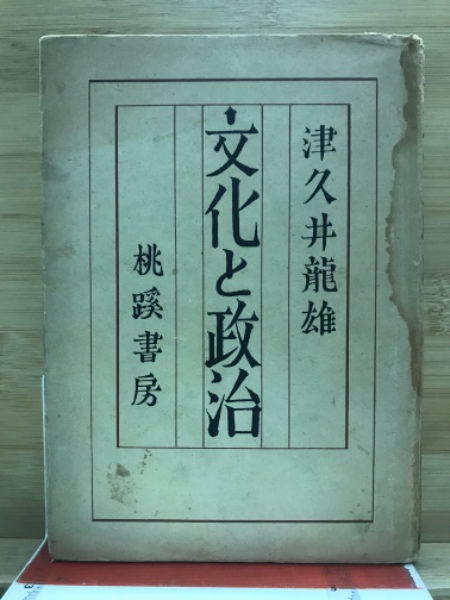 津久井龍雄
文化と政治
桃蹊書房